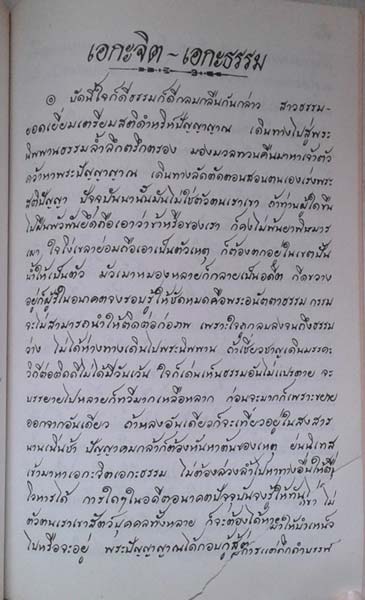 เอกะจิต ~ เอกะธรรม
๏ บัดนี้ใจก็ดีธรรมก็ดีกลมกลืนกันกล่าว สาวธรรม-
ยอดเยี่ยมเตรียมสติดำหริห์ปัญญาญาณ เดินทางไปสู่พระ
นิพพานธรรมล้ำลึกตรึกตรอง มองมวลทวนคืนมาหาเจ้าตัว
คว้าหาพระปัญญาญาณ เดินทางลัดตัดตอนสอนตนเองเร่งพระ
สติปัญญา ปัจจุบันนานั้นมันไม่ใช่ตัวตนเราเขา ถ้าท่านผู้ใดขืน
ไปฝืนพัวพันยึดถือเอาว่าข้าหรือของเรา ก็คงไม่พ้นยาพิษมาร
เมา ใจโง่เขลาย่อมถือเอาเป็นตัวเหตุ ก็ต้องตกอยู่ในเขตปั้น
น้ำให้เป็นตัว มัวเมาหมองหลายก็กลายเป็นอดีต กีดขวาง
อยู่ก็ผู้รู้ในอนาคตจงรอบรู้ให้ชัดหมดคือพระอนัตตาธรรม กรรม
จะไม่สามารถนำให้ติดต่อก่อภพ เพราะใจตกลบลงจนถึงธรรม
ว่าง ไม่ได้ห่างทางเดินไปพระนิพพาน ถ้าเชี่ยวชาญเดินมรรคะ
วิถีต่อติดดีไม่ได้มีวันเว้น ใจก็เด่นเห็นธรรมอันไม่แปรตาย จะ
บรรยายไปหลายก็ทวีมากเหลือหลาก ก่อนจะมากก็เพราะขยาย
ออกจากอันเดียว ถ้าหลงอันเดียวก็จะเที่ยวอยู่ในสงสาร
นานเนิ่นช้า ปัญญาคมกล้าก็ต้องหันหาต้นของเหตุ ย่นนิเทส
เข้ามาหาเอกะจิตเอกะธรรม ไม่ต้องล่วงล้ำไปหาทางอื่นให้
วิหารได้ การใดๆในอดีตอนาคตปัจจุบันจงรู้ให้ทัน ไม่
ตัวตนเราเขาสัตว์บุคคลทั้งหลาย ก็จะต้องได้
ไปหรือจะอยู่ พระปัญญาญาณได้กอบกู้